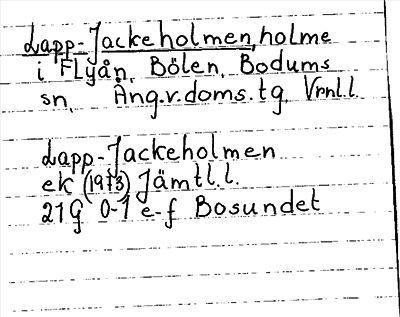 Lapp-Jackeholmen, holme
i Flyån, Bölen, Bodums
sn, Ång.v.doms.tg, Vrnl.l.
Lapp-Jackeholmen
ek (1973) Jämtl.l.
21G 0-1 e-f Bosundet